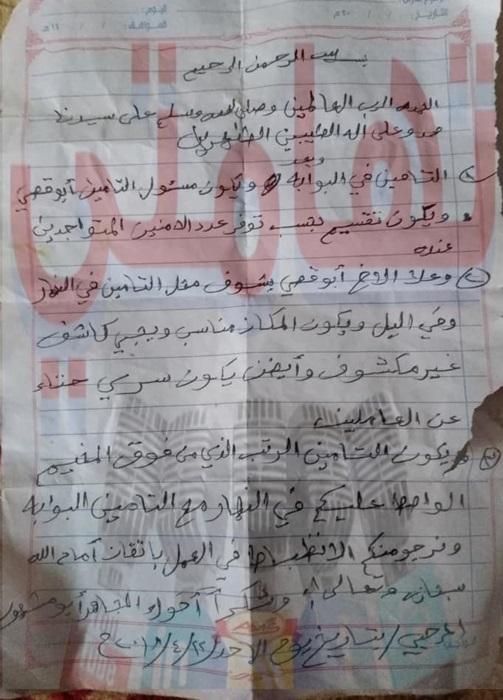 اليوم:
التاريخ: / / ٢٠م
الموافق: / / ١٤هـ
بسم الله الرحمن الرحيم
الحمد لله رب العالمين وصلى الله وسلم على سيدنا
محمد وعلى آله الطيبين الطاهرين
وبعد
التامين في البوابه ويكون مسئول التامين أبو قصي
ويكون تقسيم بحسب توفر عدد الامنين المتواجدين
عنده
وعلا الاخ أبو قصي يشوف محل التامين في النهار
وفي اليل ويكون المكان مناسب ويجي كاشف
غير مكشوف وأيضن يكون سري حتاء
عن العاملين
ويكون التامين الرتب الذي من فوق المخيم
الواصل عليكم في النهار مع التامين البوابه
ونرجو منكم الانظباط في العمل باتقان أمام الله
سبحانه وتعالى وشكراً أخوكم المجاهد أبو
بتاريخ يوم الاحد ٢٢/٤/٢٠١٨م
تهامتي